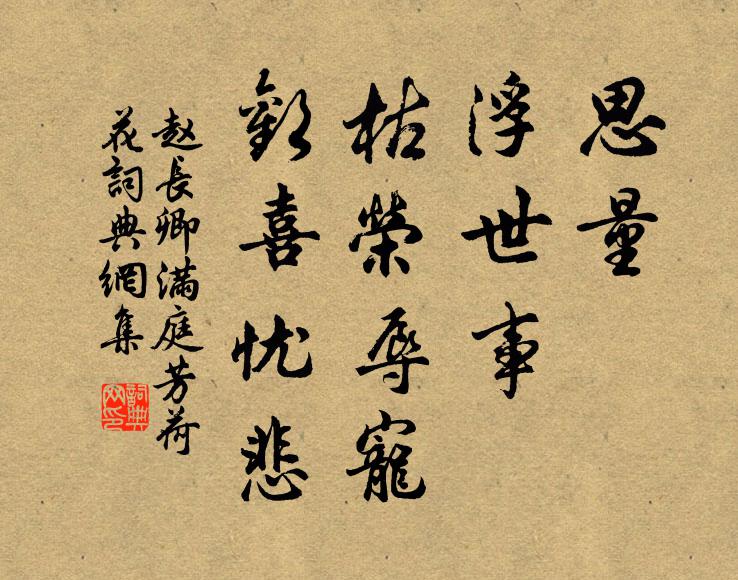 思量
浮世事
枯榮辱寵
歡喜忧悲
赵長卿满庭芳荷
花詞典網集
詞典
网印